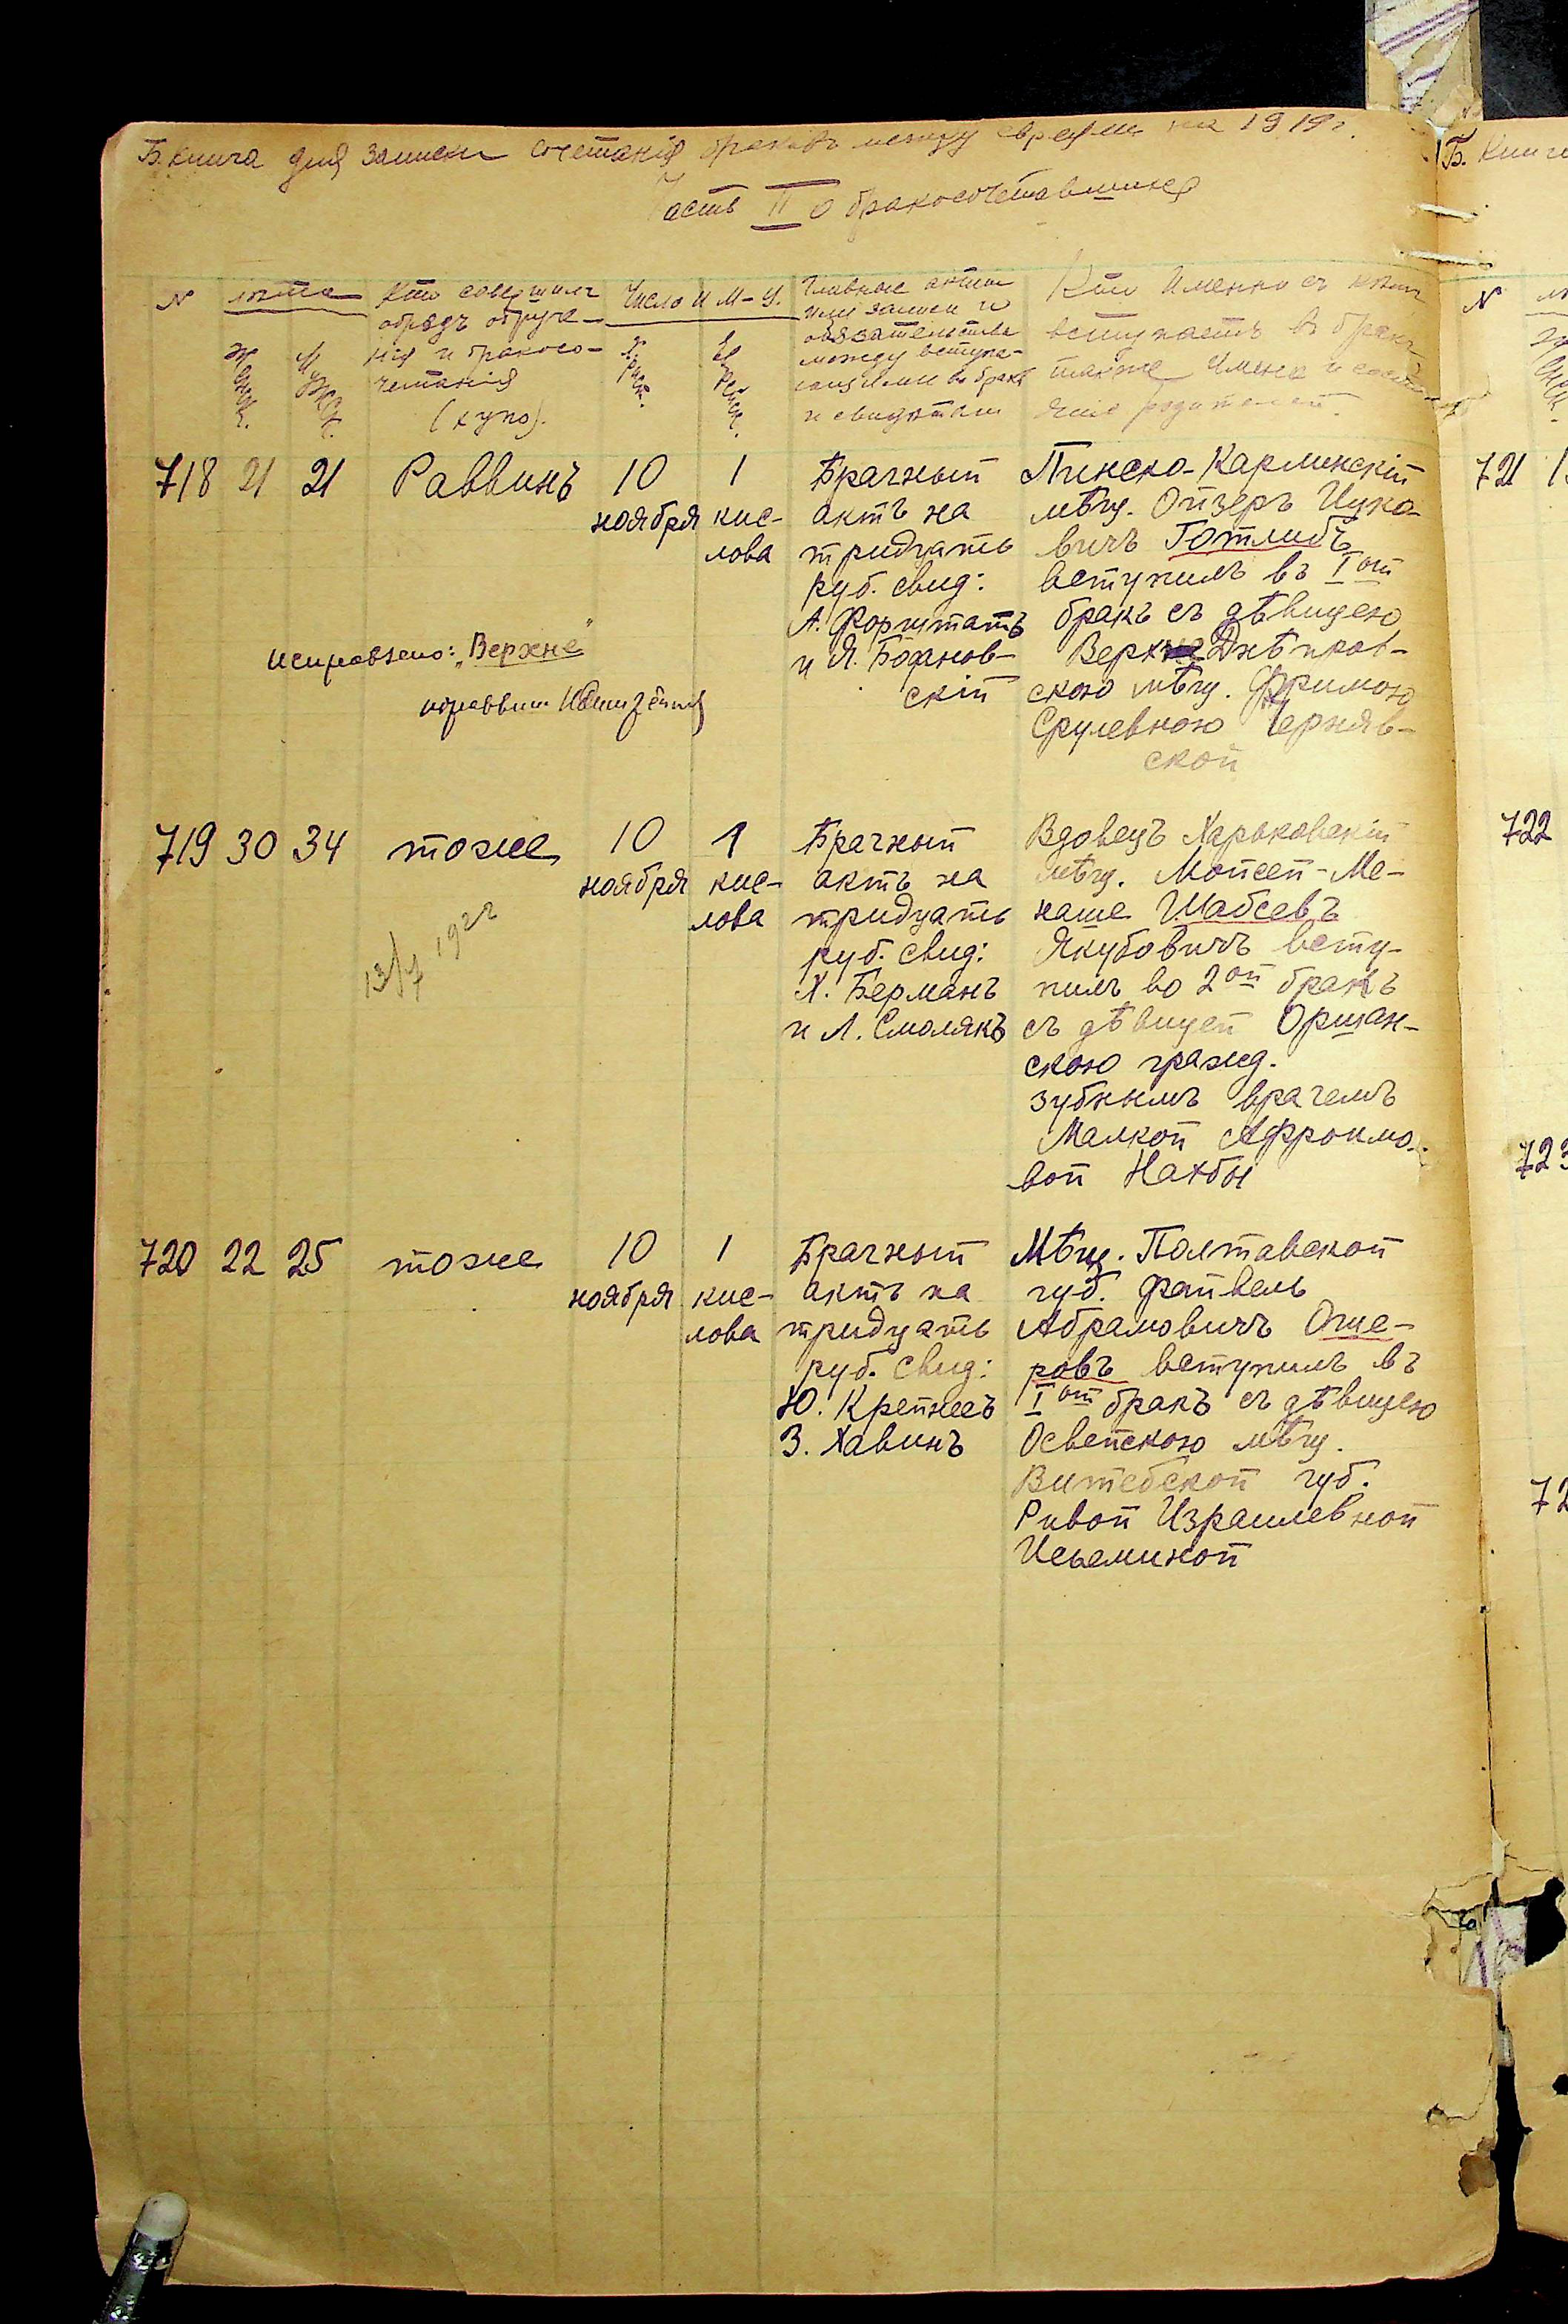 Б. Книга для записки сочетанія браковъ между евреями на 1919 г.
Часть II о бракосочетавшихся
N
лѣта
Женск.
Мужск.
Кто совершилъ
обрядъ обруче-
нія и бракосо-
четанія
(хупо).
Число и М-ц.
Христ.
Еврейск.
Главные акты
или записи и
обязательства
между вступа-
ющими въ бракъ
и свидѣтели
Кто Именно съ кѣмъ
вступаетъ въ бракъ
также Имена и состо-
яніе родителей.
718 21 21 Раввинъ
10
ноября
1
кис-
лова
Брачный
актъ на
тридцать
руб. свид:
А. Форштатъ
и Я.
скій
Пинско-Карлинскій
мѣщ. Ойзеръ Ицко-
вичъ Готлибъ
вступилъ въ I ой
бракъ съ дѣвицею
Верхне Днѣпров-
скою мѣщ. Фрумою
Срулевною Черняв-
ской
исправлено: „Верхне"
719 30 34 тоже
10
ноября
1
кис-
лова
Брачный
актъ на
тридцать
руб. свид:
Х. Берманъ
и Л. Смолякъ
Вдовецъ Харьковскій
мѣщ. Мойсей-Ме-
наше Шабсевъ
Якубовичъ всту-
пилъ во 2 ой бракъ
съ дѣвицей Оршан-
скою гражд.
зубнымъ врачемъ
Малкой Афроимо-
вой Нахбы
13/7 1922
720 22 25 тоже
10
ноября
1
кис-
лова
Брачный
актъ на
тридцать
руб. свид:
Ю. Крейнесъ
З. Хавинъ
Мѣщ. Полтавской
губ. Файвель
Абрамовичъ Оше-
ровъ вступилъ въ
I ой бракъ съ дѣвицею
Освейскою мѣщ.
Витебской губ.
Ривой Израилевной
Иоселиной
Б. Книга
N
721
722
723
72